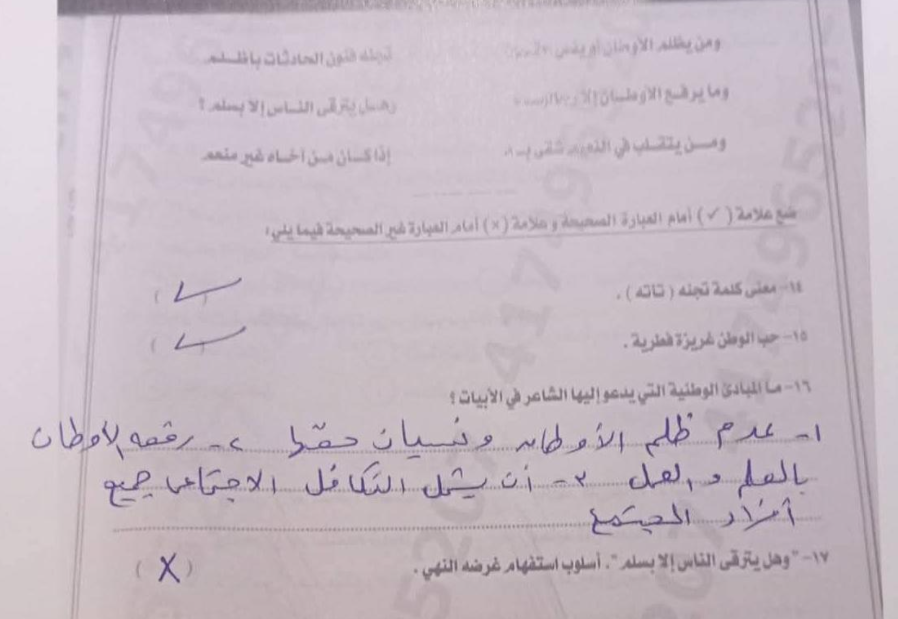 ومن يظلم الأوطان أو ينس حقها تجئه فنون الحادثات بأظلم
وما يرفع الأوطان إلا رجالها وهل يترقى الناس إلا بسلم ؟
ومن يتقلب في النعيم شقى به إذا كان من أخاه غير منعم
ضع علامة ( ✓ ) أمام العبارة الصحيحة وعلامة (×) أمام العبارة غير الصحيحة فيما يلي:
١٤- معنى كلمة تجئه ( تأته ) . ( ✓ )
١٥- حب الوطن غريزة فطرية . ( ✓ )
١٦- ما المبادئ الوطنية التي يدعو إليها الشاعر في الأبيات ؟
١- عدم ظلم الأوطان ونسيان حقها ٢- رفعة الأوطان
بالعلم والعمل ٣- أن يشمل التكافل الاجتماعى جميع
أفراد المجتمع
١٧- "وهل يترقى الناس إلا بسلم". أسلوب استفهام غرضه النهي . ( X )